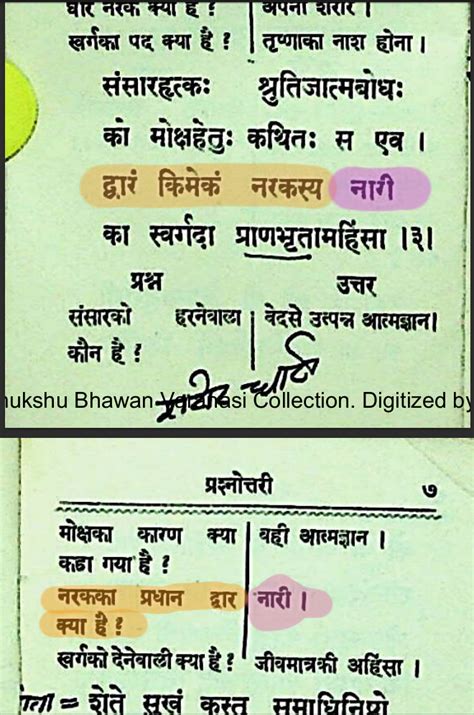 घोर नरक क्या है ? अपना शरीर ।
स्वर्गका पद क्या है ? तृष्णाका नाश होना ।
संसारहृत्कः श्रुतिजात्मबोधः
को मोक्षहेतुः कथितः स एव ।
द्वारं किमेकं नरकस्य नारी
का स्वर्गदा प्राणभृतामहिंसा ।३।
प्रश्न उत्तर
संसारको हरनेवाला वेदसे उत्पन्न आत्मज्ञान।
कौन है ?
mukshu Bhawan Varanasi Collection. Digitized by
प्रश्नोत्तरी ७
मोक्षका कारण क्या वही आत्मज्ञान ।
कहा गया है ?
नरकका प्रधान द्वार नारी ।
क्या है ?
स्वर्गको देनेवाली क्या है ? जीवमात्रकी अहिंसा ।
शेते सुखं कस्तु समाधिनिष्ठो